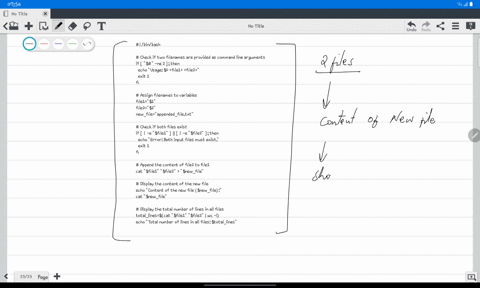 07:54
No Title
No Title
Undo
Redo
#!/bin/bash
# Check if two filenames are provided as command line arguments
if [ "$#" -ne 2 ]; then
echo "Usage: $0 <file1> <file2>"
exit 1
fi
# Assign filenames to variables
file1="$1"
file2="$2"
new_file="appended_file.txt"
# Check if both files exist
if [ ! -e "$file1" ] || [ ! -e "$file2" ]; then
echo "Error: Both input files must exist."
exit 1
fi
# Append the content of file2 to file1
cat "$file1" "$file2" > "$new_file"
# Display the content of the new file
echo "Content of the new file ($new_file):"
cat "$new_file"
# Display the total number of lines in all files
total_lines=$( cat "$file1" "$file2" | wc -l)
echo "Total number of lines in all files: $total_lines"
2 files
Content of New file
sho
Page